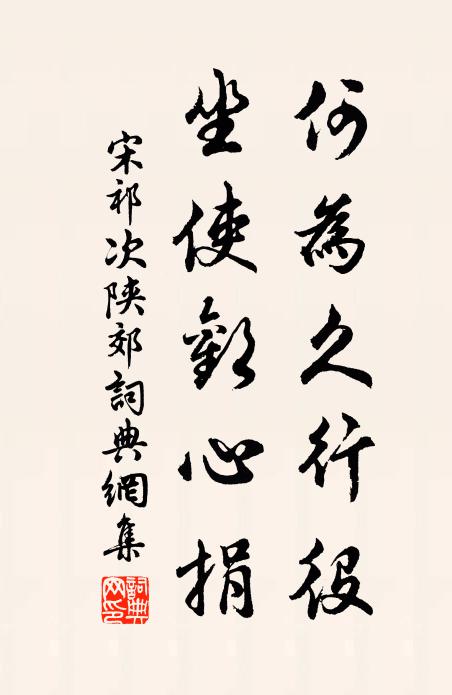 何為久行役
坐使歡心捐
宋祁次陝郊詞典網集
詞典網印